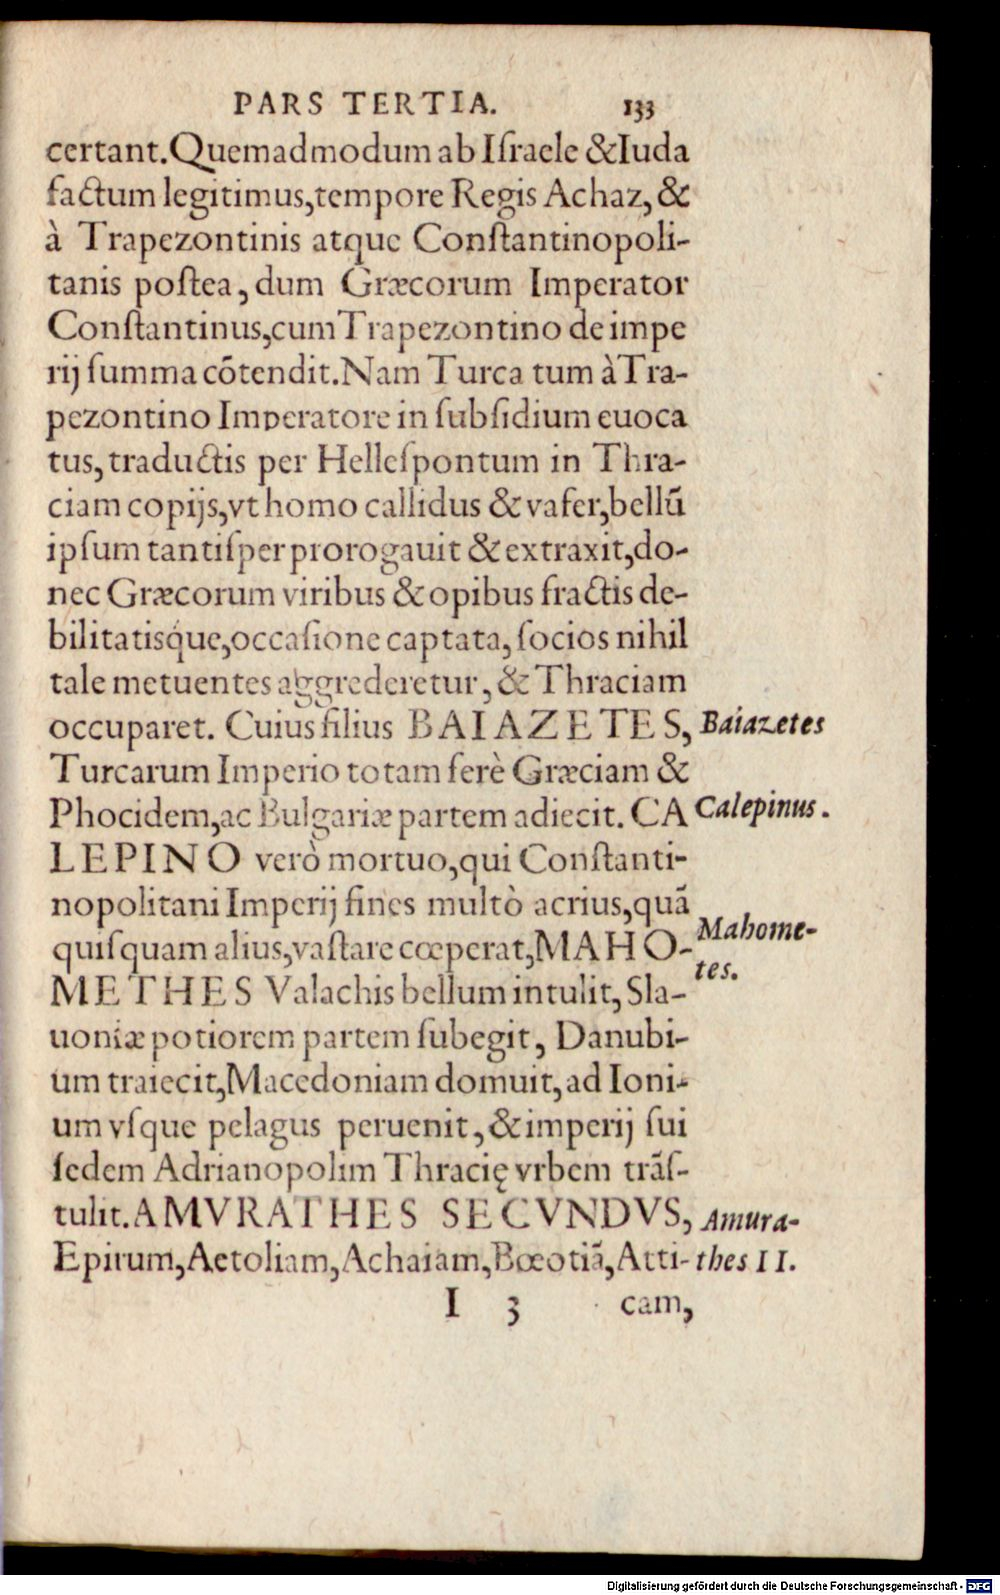 PARS TERTIA. 133
certant. Quemadmodum ab Iſraele & Iuda
factum legitimus, tempore Regis Achaz, &
à Trapezontinis atque Conſtantinopoli-
tanis poſtea, dum Græcorum Imperator
Conſtantinus, cum Trapezontino de impe
rij ſumma cõtendit. Nam Turca tum à Tra-
pezontino Imperatore in ſubſidium euoca
tus, traductis per Helleſpontum in Thra-
ciam copijs, vt homo callidus & vafer, bellũ
ipſum tantiſper prorogauit & extraxit, do-
nec Græcorum viribus & opibus fractis de-
bilitatisq́ue, occaſione captata, ſocios nihil
tale metuentes aggrederetur, & Thraciam
occuparet. Cuius filius BAIAZETES, Baiazetes
Turcarum Imperio totam ferè Græciam &
Phocidem, ac Bulgariæ partem adiecit. CA Calepinus.
LEPINO verò mortuo, qui Conſtanti-
nopolitani Imperij fines multò acrius, quã
quiſquam alius, vaſtare cœperat, MAHO- Mahome-
METHES Valachis bellum intulit, Sla- tes.
uoniæ potiorem partem ſubegit, Danubi-
um traiecit, Macedoniam domuit, ad Ioni-
um vſque pelagus peruenit, & imperij ſui
ſedem Adrianopolim Thracię vrbem trãſ-
tulit. AMVRATHES SECVNDVS, Amura-
Epirum, Aetoliam, Achaiam, Bœotiã, Atti- thes II.
I 3 cam,
Digitalisierung gefördert durch die Deutsche Forschungsgemeinschaft - DFG